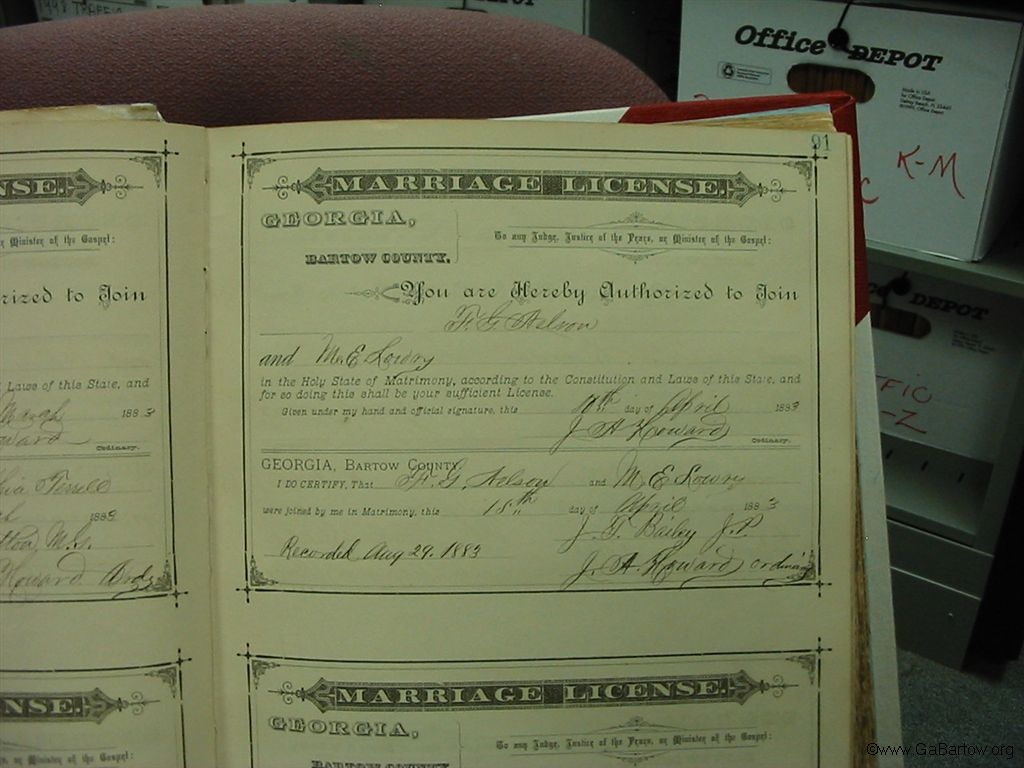 1998 TRAFFIC
Office DEPOT
Made in USA
for Office Depot
K-M
C
DEPOT
FIC
-Z
91
NSE.
or Minister of the Gospel:
rized to Join
Laws of this State, and
March 1883
oward
Ordinary.
Terrell
1883
M.G.
Howard Ord
MARRIAGE LICENSE.
GEORGIA,
BARTOW COUNTY.
To any Judge, Justice of the Peace, or Minister of the Gospel:
You are Hereby Authorized to Join
F. G. Nelson
and M. E. Lowry
in the Holy State of Matrimony, according to the Constitution and Laws of this State, and
for so doing this shall be your sufficient License.
Given under my hand and official signature, this day of April 1883
J A Howard Ordinary.
GEORGIA, Bartow County.
I DO CERTIFY, That F. G. Nelson and M. E. Lowry
were joined by me in Matrimony, this 15th day of April 1883
J. T. Bailey J.P.
Recorded Aug 29. 1883
J. A. Howard ordinary
NSE.
or Minister of the Gospel:
MARRIAGE LICENSE.
GEORGIA,
BARTOW COUNTY.
To any Judge, Justice of the Peace, or Minister of the Gospel:
©www.GaBartow.org